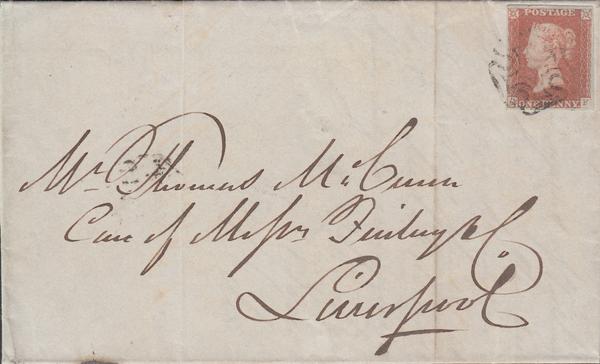 POSTAGE
ONE PENNY
Mr. Thomas McCunn
Care of Messrs Finlay & Co
Liverpool